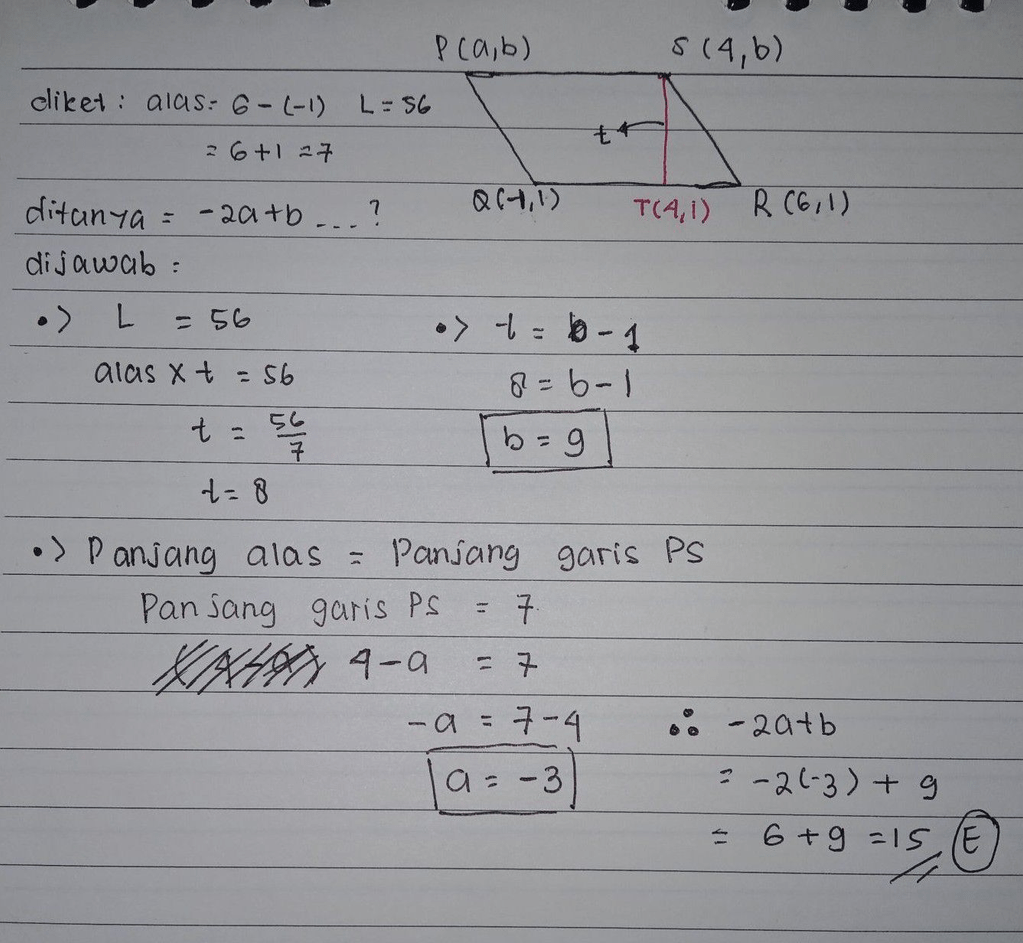 P(a,b) S (4,b)
diket : alas = 6 - (-1) L = 56
= 6+1 = 7
t
Q(-1,1) T(4,1) R (6,1)
ditanya = -2a+b ...?
dijawab :
•> L = 56
alas x t = 56
t = 56/7
t = 8
•> t = b - 1
8 = b - 1
b = 9
•> Panjang alas = Panjang garis PS
Panjang garis PS = 7
4 - a = 7
-a = 7 - 4
a = -3
∴ -2a+b
= -2(-3) + 9
= 6 + 9 = 15 E